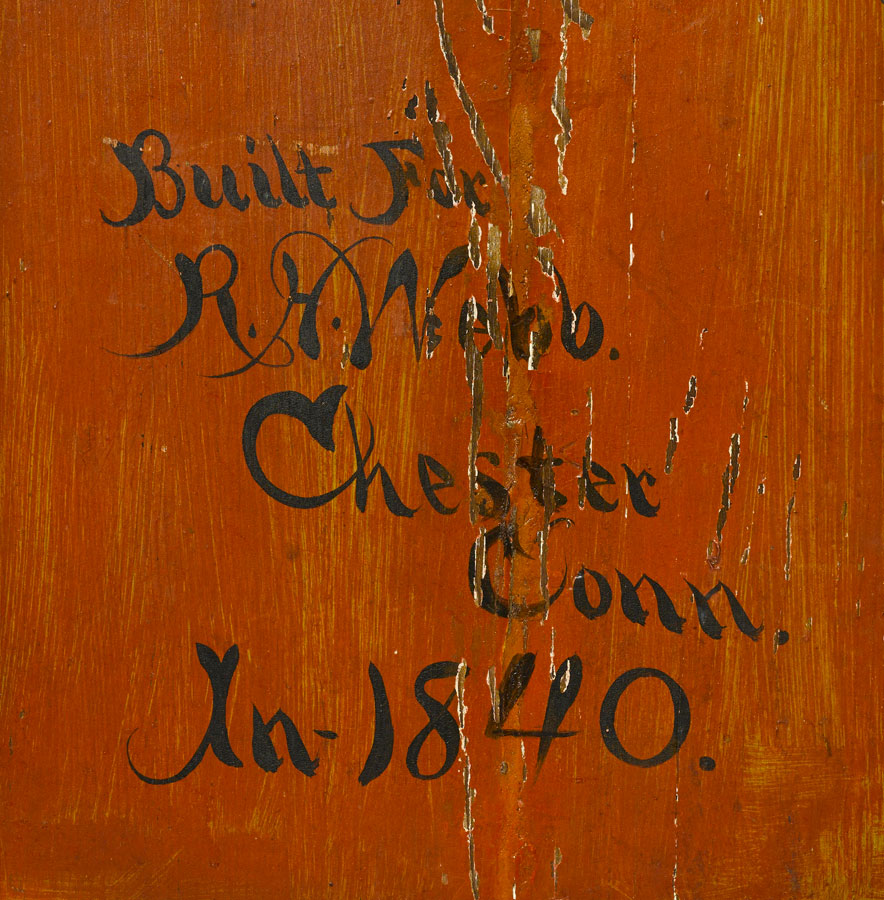 Built For
R. H. Webb.
Chester
Conn.
In-1840.